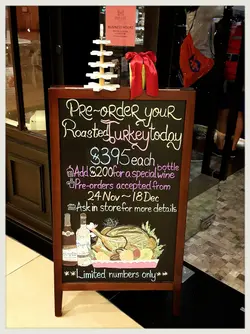 Pre-order your
Roasted Turkey today
$395 each
Add $200 for a special wine bottle
Pre-orders accepted from
24 Nov ~ 18 Dec
Ask in store for more details
Limited numbers only